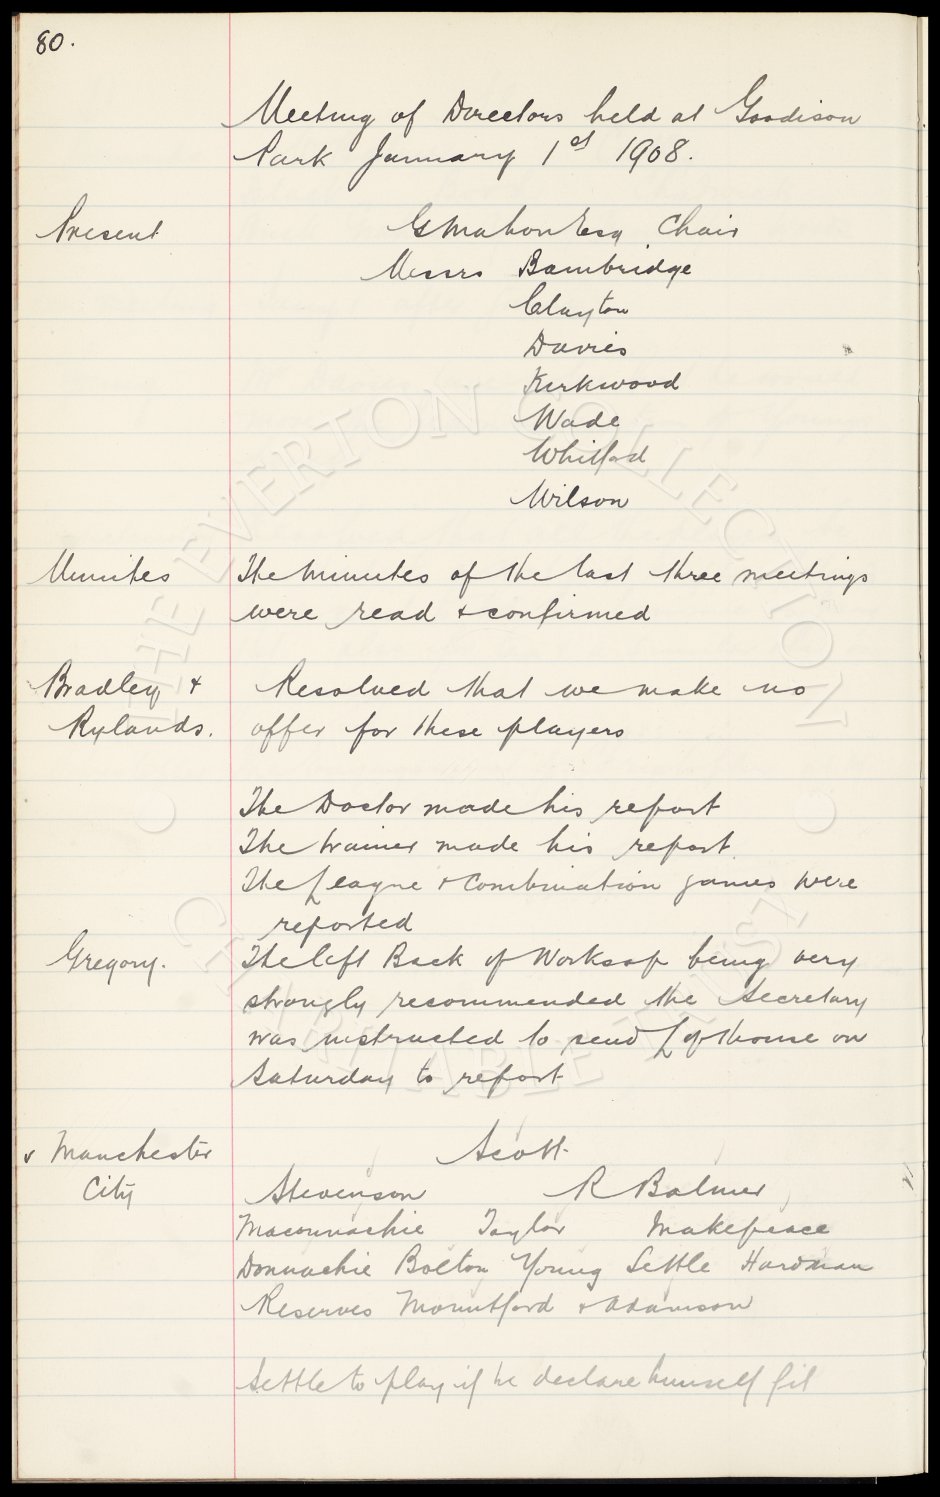 80.
Meeting of Directors held at Goodison
Park January 1st 1908.
Present G Mahon Esq Chair
Messrs Bambridge
Clayton
Davies
Kirkwood
Wade
Whitford
Wilson
Minutes The minutes of the last three meetings
were read & confirmed
Bradley & Resolved that we make no
Rylands. offer for these players
The Doctor made his report
The trainer made his report
The League & Combination games were
reported
Gregory. The left Back of Worksop being very
strongly recommended the Secretary
was instructed to send on
Saturday to report
v Manchester Scott
City Stevenson R Balmer
Maconnachie Taylor Makepeace
Donnachie Bolton Young Settle Hardman
Reserves Mountford & Adamson
Settle to play if he declare himself fit
THE EVERTON COLLECTION
CHARITABLE TRUST